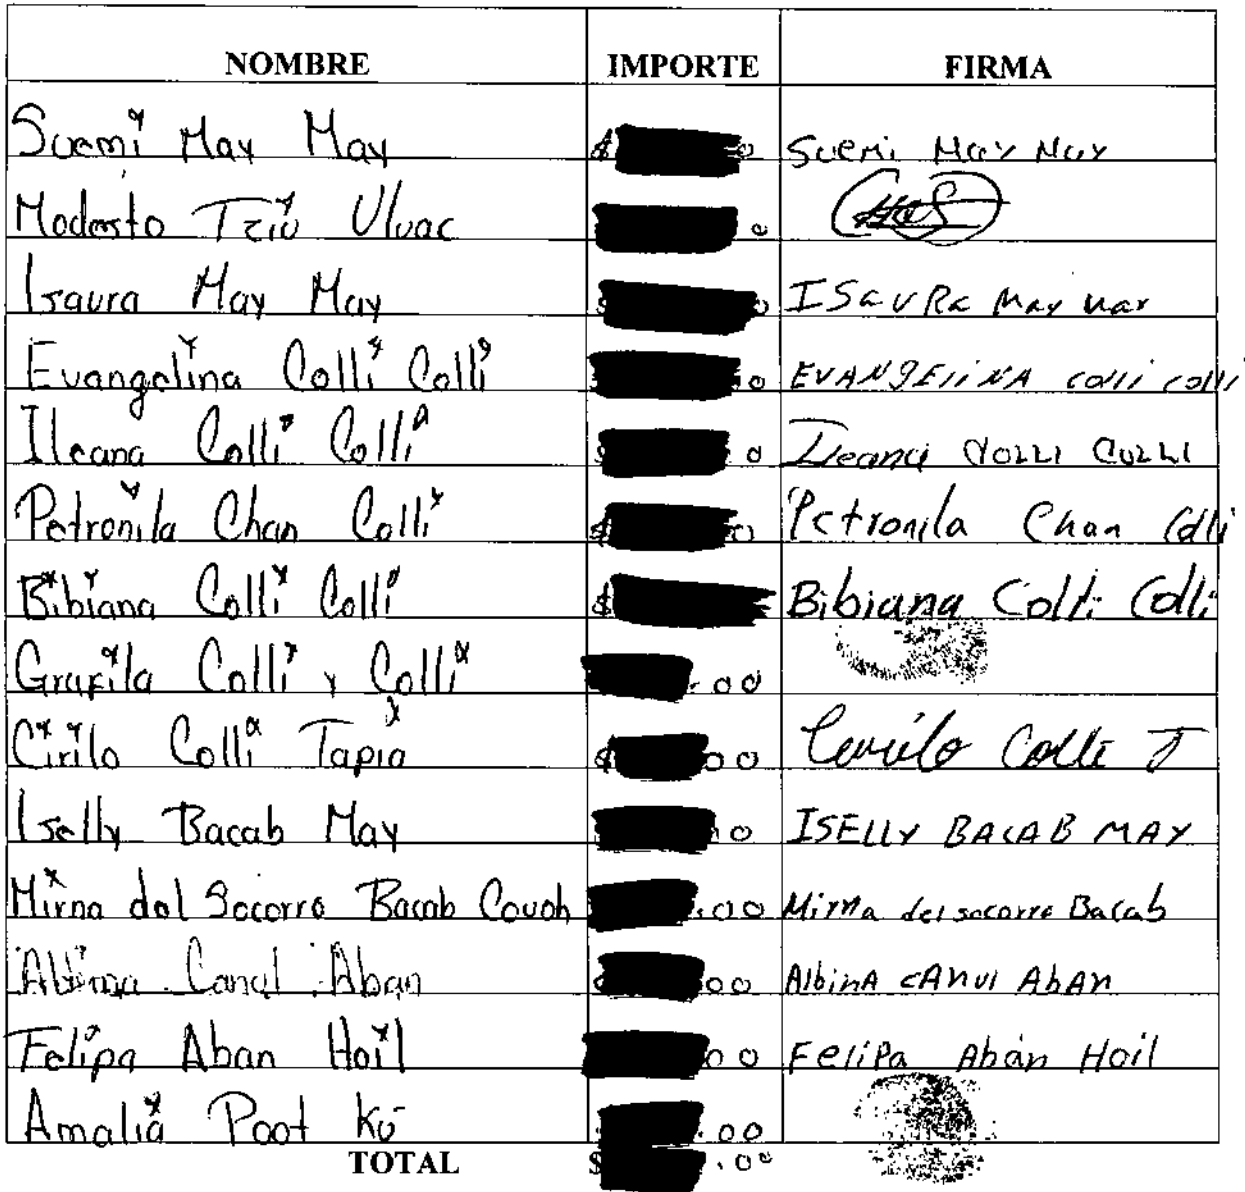 NOMBRE IMPORTE FIRMA
Suemi May May $ 0 Suemi May May
Modesto Tziu Uluac 0
Isaura May May $ 0 ISauRa May May
Evangelina Colli Colli $ 0 EVANGELINA colli colli
Ileana Colli Colli $ 0 Ileana COLLI COLLI
Petronila Chan Colli $ 0 Petronila Chan Colli
Bibiana Colli Colli $ Bibiana Colli Colli
Grafila Colli y Colli .00
Cirilo Colli Tapia $ 00 Cirilo Colli T
Iselly Bacab May 0 ISELLY BACAB MAY
Mirna del Socorro Bacab Couoh .00 Mirna del socorro Bacab
Albina Canul Aban 00 AlbinA cANul AbAn
Felipa Aban Hoil 00 FeliPa Abán Hoil
Amalia Poot Ku .00
TOTAL $ .00